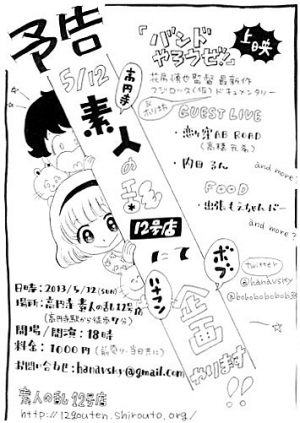 予告
「バンドやろうぜ!」
上映
5/12
高円寺
素人の乱
12号店
にて
ハナフサ
ボブ
企画
やります!!
最新作
ドキュメンタリー
GUEST LIVE
AB ROAD
・内田るん
and more!
FOOD
・出張もえちゃんバー
and more?
twitter
@hanavsky
日時:2013/5/12(sun)
場所:高円寺 素人の乱12号店
(高円寺駅から徒歩7分)
開場/開演:18時
料金:1000円(前売り・当日共に)
お問い合せ:hanavsky@gmail.com
素人の乱12号店
http://12gouten.shirouto.org/